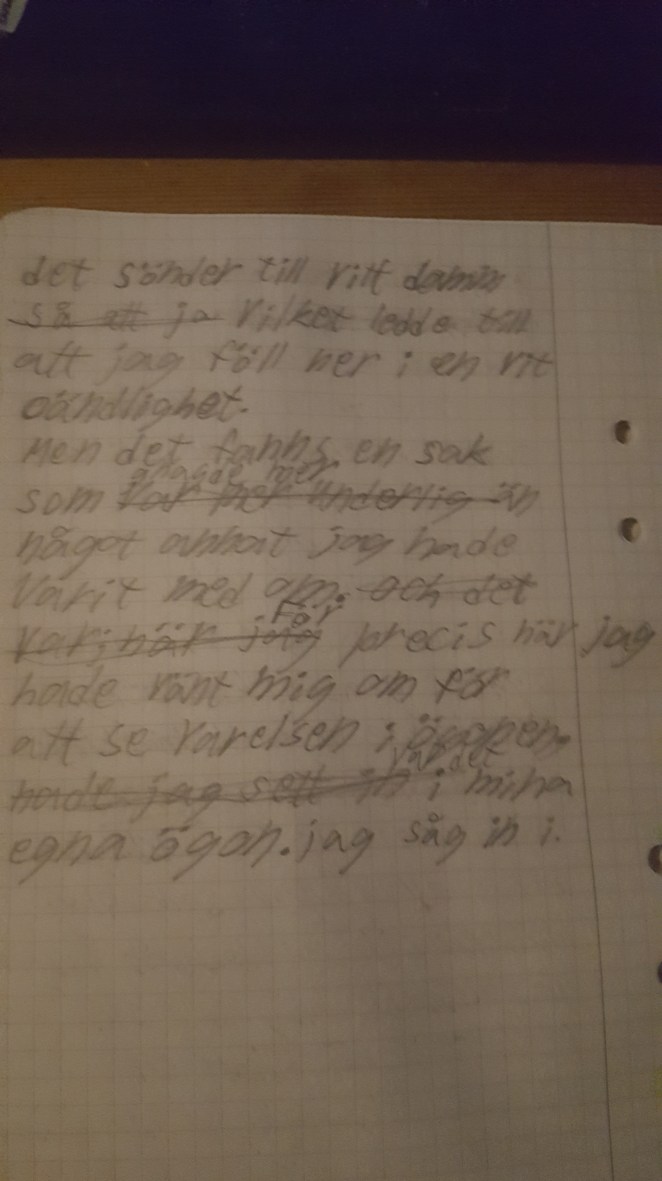 det sönder till vitt damm
så att ja vilket ledde till
att jag föll ner i en vit
oändlighet.
Men det fanns en sak
gnagde mer
som var mer underlig än
något annat jag hade
varit med om. och det
För
var; när jag precis när jag
hade vänt mig om för
att se varelsen i ögonen.
var det
hade jag sett in i mina
egna ögon. jag såg in i.